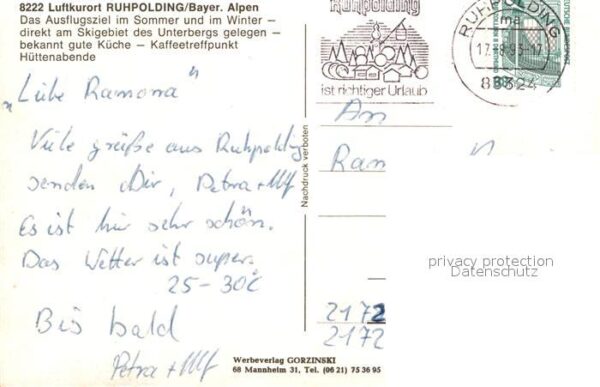 8222 Luftkurort RUHPOLDING/Bayer. Alpen
Das Ausflugsziel im Sommer und im Winter –
direkt am Skigebiet des Unterbergs gelegen –
bekannt gute Küche – Kaffeetreffpunkt
Hüttenabende
„Liebe Ramona"
Viele grüße aus Ruhpolding
senden Dir, Petra + Ulf
Es ist hir sehr schön.
Das Wetter ist super.
25-30°C
Bis bald
Petra + Ulf
Werbeverlag GORZINSKI
68 Mannheim 31, Tel. (06 21) 75 36 95
Nachdruck verboten
Ruhpolding
ist richtiger Urlaub
RUHPOLDING
ma
17.-8.93-17
83324
An
Ram
2172
2172
privacy protection
Datenschutz